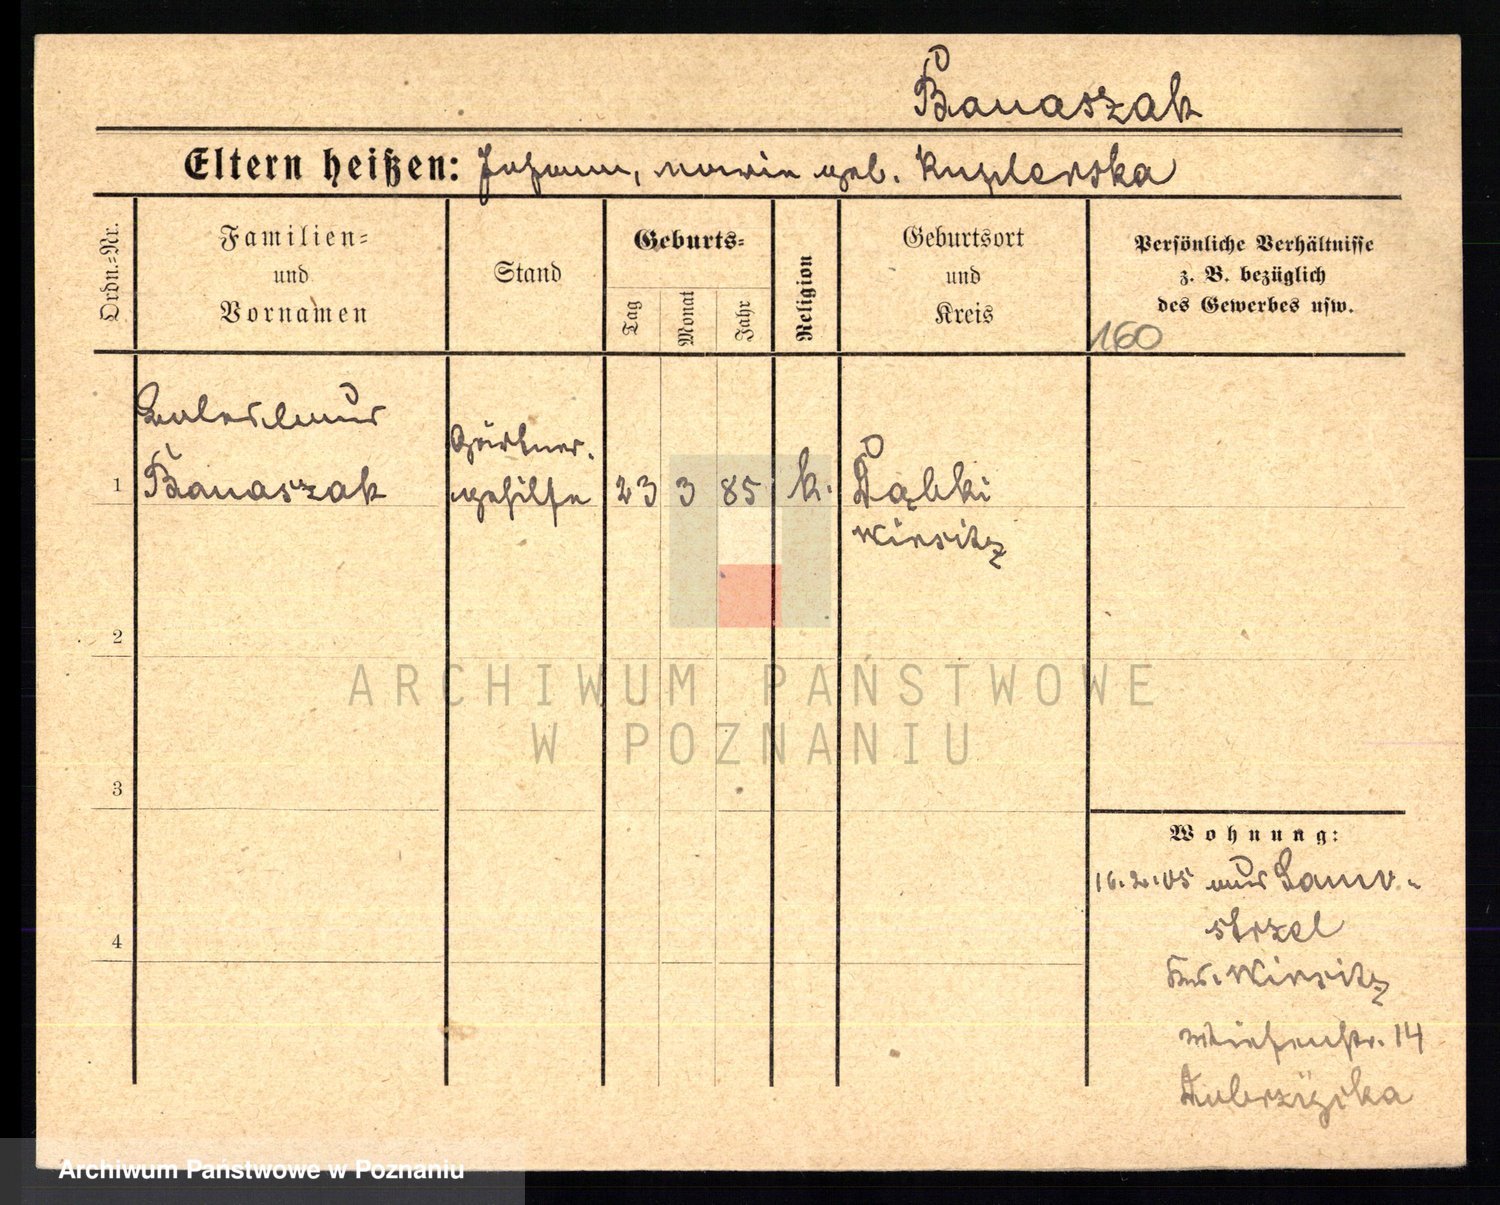 Banaszak
Eltern heißen: Johann, Marie geb. Kuglerska
Ordn.=Nr.
Familien=
und
Vornamen
Stand
Geburts=
Tag
Monat
Jahr
Religion
Geburtsort
und
Kreis
Persönliche Verhältnisse
z. B. bezüglich
des Gewerbes usw.
160
Banaszak
Gärtner.
1
gehilfe
23 3 85 k. Dąbki
Wirsitz
2
ARCHIWUM PAŃSTWOWE
W POZNANIU
3
Wohnung:
16.2.05 aus
4
Krs. Wirsitz
14
Archiwum Państwowe w Poznaniu